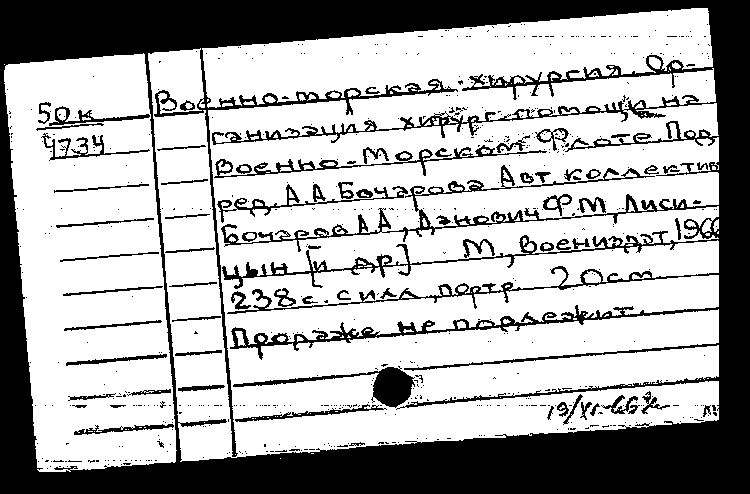 50к Военно-морская хирургия. Ор-
4734 ганизация хирург помощи на
Военно-Морском Флоте. Под
ред. А.А.Бочарова Авт. коллектив
Бочаров А А, Данович Ф.М, Лиси-
цын [и др.] М., Воениздат, 1966
238 с. с илл, портр. 20см
Продаже не подлежит.
19/XI-66г